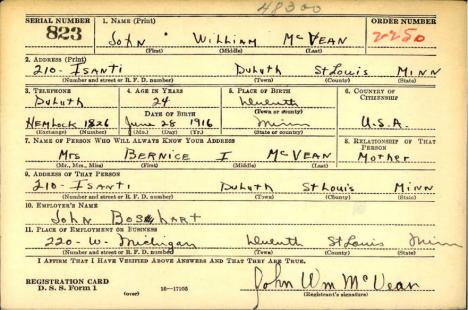 48300
SERIAL NUMBER 1. NAME (Print) ORDER NUMBER
823 JOHN WILLIAM McVEAN 2250
(First) (Middle) (Last)
2. ADDRESS (Print)
210- ISANTI DULUTH ST LOUIS MINN
(Number and street or R. F. D. number) (Town) (County) (State)
3. TELEPHONE 4. AGE IN YEARS 5. PLACE OF BIRTH 6. COUNTRY OF CITIZENSHIP
DULUTH 24 Duluth
(Town or county)
DATE OF BIRTH
HEMLOCK 1826 June 28 1916 Minn U.S.A.
(Exchange) (Number) (Mo.) (Day) (Yr.) (State or country)
7. NAME OF PERSON WHO WILL ALWAYS KNOW YOUR ADDRESS 8. RELATIONSHIP OF THAT PERSON
MRS BERNICE I McVEAN MOTHER
(Mr., Mrs., Miss) (First) (Middle) (Last)
9. ADDRESS OF THAT PERSON
210- ISANTI DULUTH ST LOUIS MINN
(Number and street or R. F. D. number) (Town) (County) (State)
10. EMPLOYER'S NAME
JOHN BOSHART
11. PLACE OF EMPLOYMENT OR BUSINESS
220- W- Michigan Duluth St Louis Minn
(Number and street or R. F. D. number) (Town) (County) (State)
I AFFIRM THAT I HAVE VERIFIED ABOVE ANSWERS AND THAT THEY ARE TRUE.
REGISTRATION CARD John Wm McVean
D. S. S. Form 1 (over) 16—17105 (Registrant's signature)